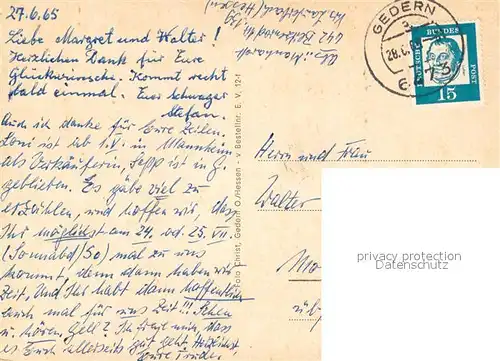 27.6.65
Liebe Margret und Walter!
Herzlichen Dank für Eure
Glückwünsche. Kommt recht
bald einmal. Euer Schwager
Stefan.
Auch ich danke für Eure Zeilen.
Loni ist ab 1.V. in Mannheim
als Verkäuferin, Sepp ist in G.
geblieben. Es gäbe viel zu
erzählen, und hoffen wir, dass
Ihr möglichst am 24. od. 25. VII.
(Sonnabd/So) mal zu uns
kommt, denn dann haben wir
Zeit, und Ihr habt dann hoffentlich
auch mal für uns Zeit!!! Sehen
u. hören, gell? Ich frage mal, dass
es Euch allerseits gut geht. Herzlichst
Eure
Foto Christ, Gedern O./Hessen - v Bestellnr. E. V. 12-1
GEDERN
28.6.
DEUTSCHE BUNDESPOST
15
Herrn und Frau
Walter
Mo
privacy protection
Datenschutz